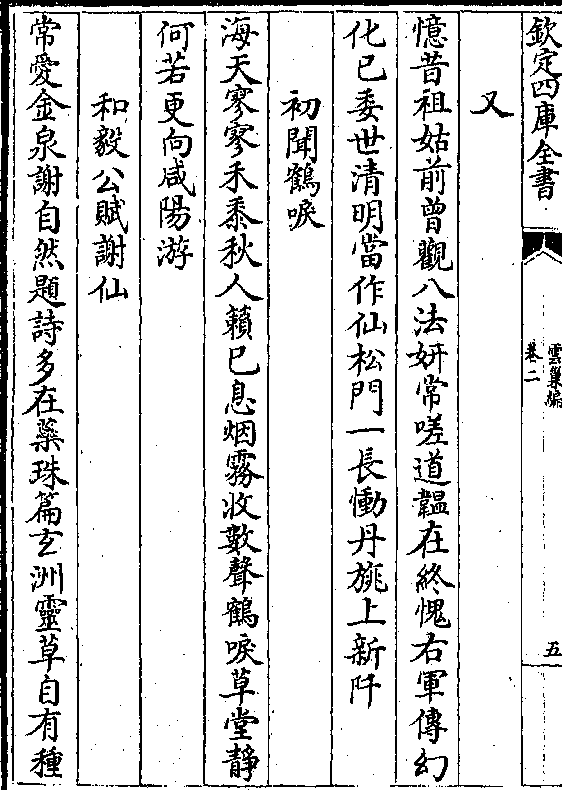 欽定四庫全書
雲巢編
卷二
五
又
憶昔祖姑前曾觀八法妍常嗟道韞在終愧右軍傳幻
化已委世清明當作仙松門一長慟丹旐上新阡
初聞鶴唳
海天寥寥禾黍秋人籟已息烟霧收數聲鶴唳草堂靜
何若更向咸陽游
和毅公賦謝仙
常愛金泉謝自然題詩多在蘂珠篇玄洲靈草自有種